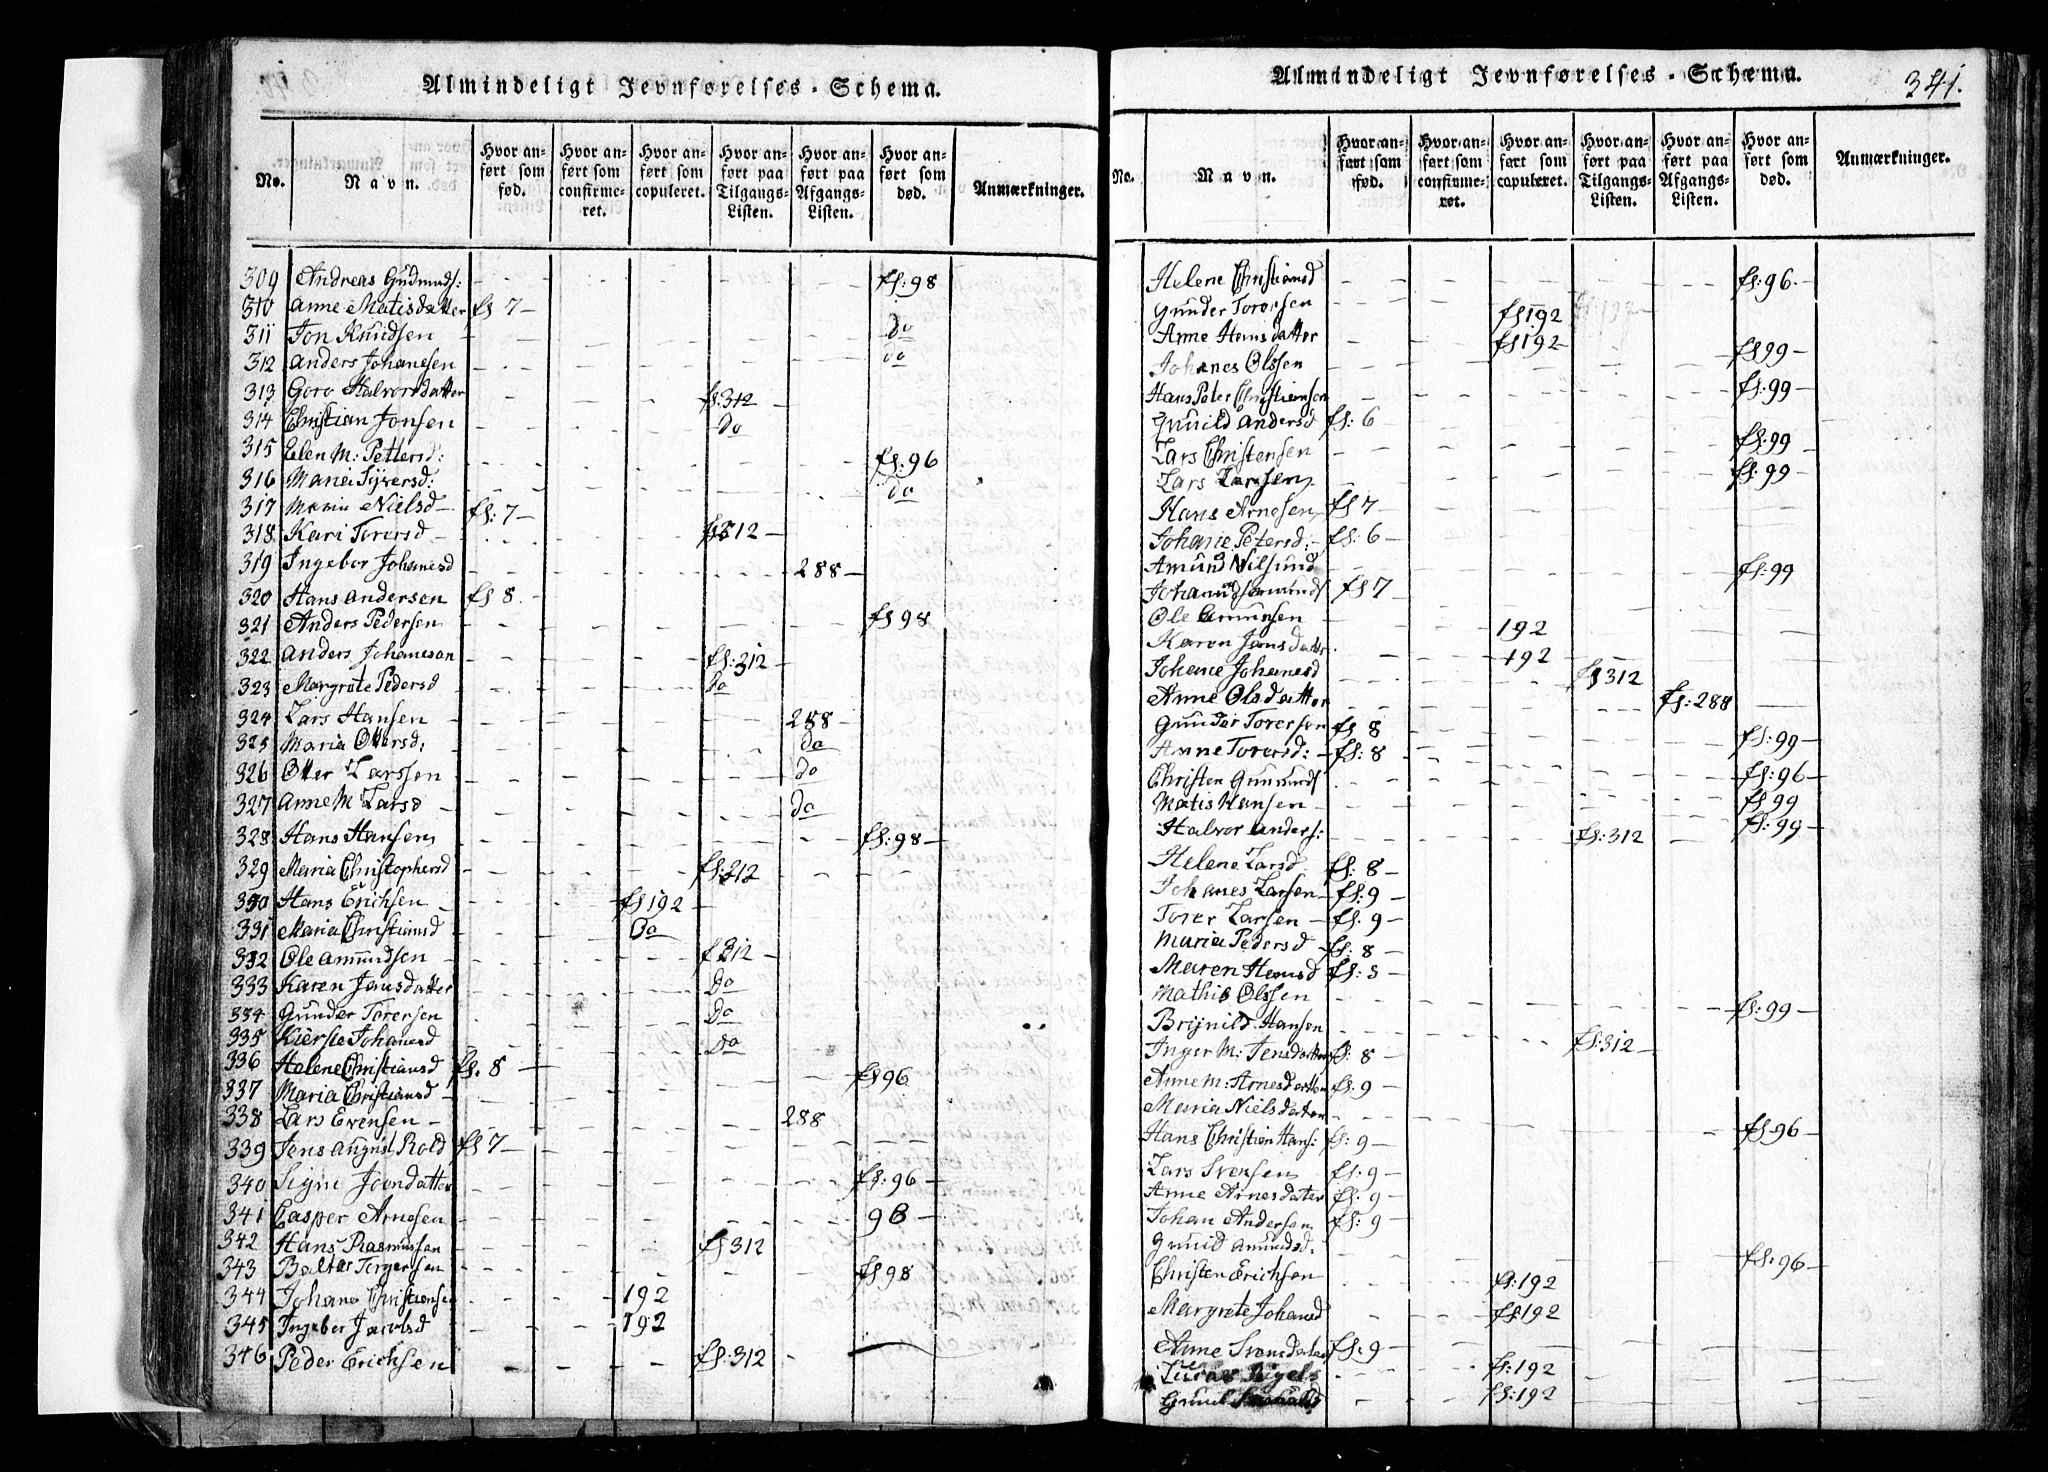 Almindeligt Jevnførelses-Schema.
No.
Navn.
Hvor anført som fød.
Hvor anført som confirmeret.
Hvor anført som copuleret.
Hvor anført paa Tilgangs-Listen.
Hvor anført paa Afgangs-Listen.
Hvor anført som død.
Anmærkninger.
309 Andreas Gudmuds: fl: 98
310 Anne Matisdatter fl 7
311 Jon Knudsen do
312 Anders Johanesen do
313 Goro Halvorsdatter fl. 312
314 Christian Jonsen do
315 Elen M: Petters d: fl: 96
316 Maria Syvers d: do
317 Maria Niels d fl: 7
318 Kari Torers d 312
319 Ingebor Johanes d 288
320 Hans Andersen fl 8
321 Anders Pedersen fl 98
322 Anders Johanesen fl: 312
323 Margrete Peders d do
324 Lars Hansen 288
325 Maria Otters d. do
326 Otter Larssen do
327 Anne M Lars d do
328 Hans Hansen fl: 98
329 Maria Christophers d fl: 312
330 Hans Erichsen fl 192
331 Maria Christians d Do
332 Ole Amundsen fl 312
333 Karen Jansdatter Do
334 Gunder Torersen Do
335 Kierste Johanes d Do
336 Helene Christians d fl. 8
337 Maria Christians d fl 96
338 Lars Evensen 288
339 Jens August Rold fl 7
340 Signe Joensdatter fl: 96
341 Casper Arnesen 96
342 Hans Rasmussen fl 312
343 Balter Torgersen fl 98
344 Johanes Christiansen 192
345 Ingeber Jacobs d 192
346 Peder Erichsen fl: 312
Almindeligt Jevnførelses-Schema.
341.
No.
Navn.
Hvor anført som fød.
Hvor anført som confirmeret.
Hvor anført som copuleret.
Hvor anført paa Tilgangs-Listen.
Hvor anført paa Afgangs-Listen.
Hvor anført som død.
Anmærkninger.
Helene Christians d fl: 96.
Gunder Torersen fl 192
Anne Hansdatter fl 192
Johanes Olssen fl 99
Hans Peter Christiansen fl: 99
Gunild Anders d fl: 6
Lars Christensen fl: 99
Lars Larssen fl: 99
Hans Arnesen fl 7
Johane Peters d: fl: 6
Amund Nilsund fl: 99
Johan Amunds fl 7
Ole Amunsen 192
Karen Jansdatter 192
Johane Johanes d fl 312
Anne Olsdatter fl: 288
Gunder Torersen fl 8 fl: 99
Anne Torers d: fl: 8
Christen Gumunds fl: 96
Matis Hansen fl 99
Halvor Anders: fl: 312 fl: 99
Helene Lars d fl: 8
Johanes Larsen fl: 9
Torer Larsen fl. 9
Maria Peders d fl: 8
Maren Hans d fl: 8
Mathis Olssen fl: 99
Brynild Hansen fl: 312
Inger M: Jensdatter fl: 8
Anne M: Arnesdatter fl: 9
Maria Nielsdater fl 96
Hans Christian Hans: fl: 9
Lars Svensen fl. 9
Anne Arnesdater fl: 9
Johan Andersen fl: 9
Gunild Amunds d. fl: 96
Christen Erichsen fl: 192
Margrete Johans d fl 192
Anne Svensdater fl. 9
fl: 192
fl: 192